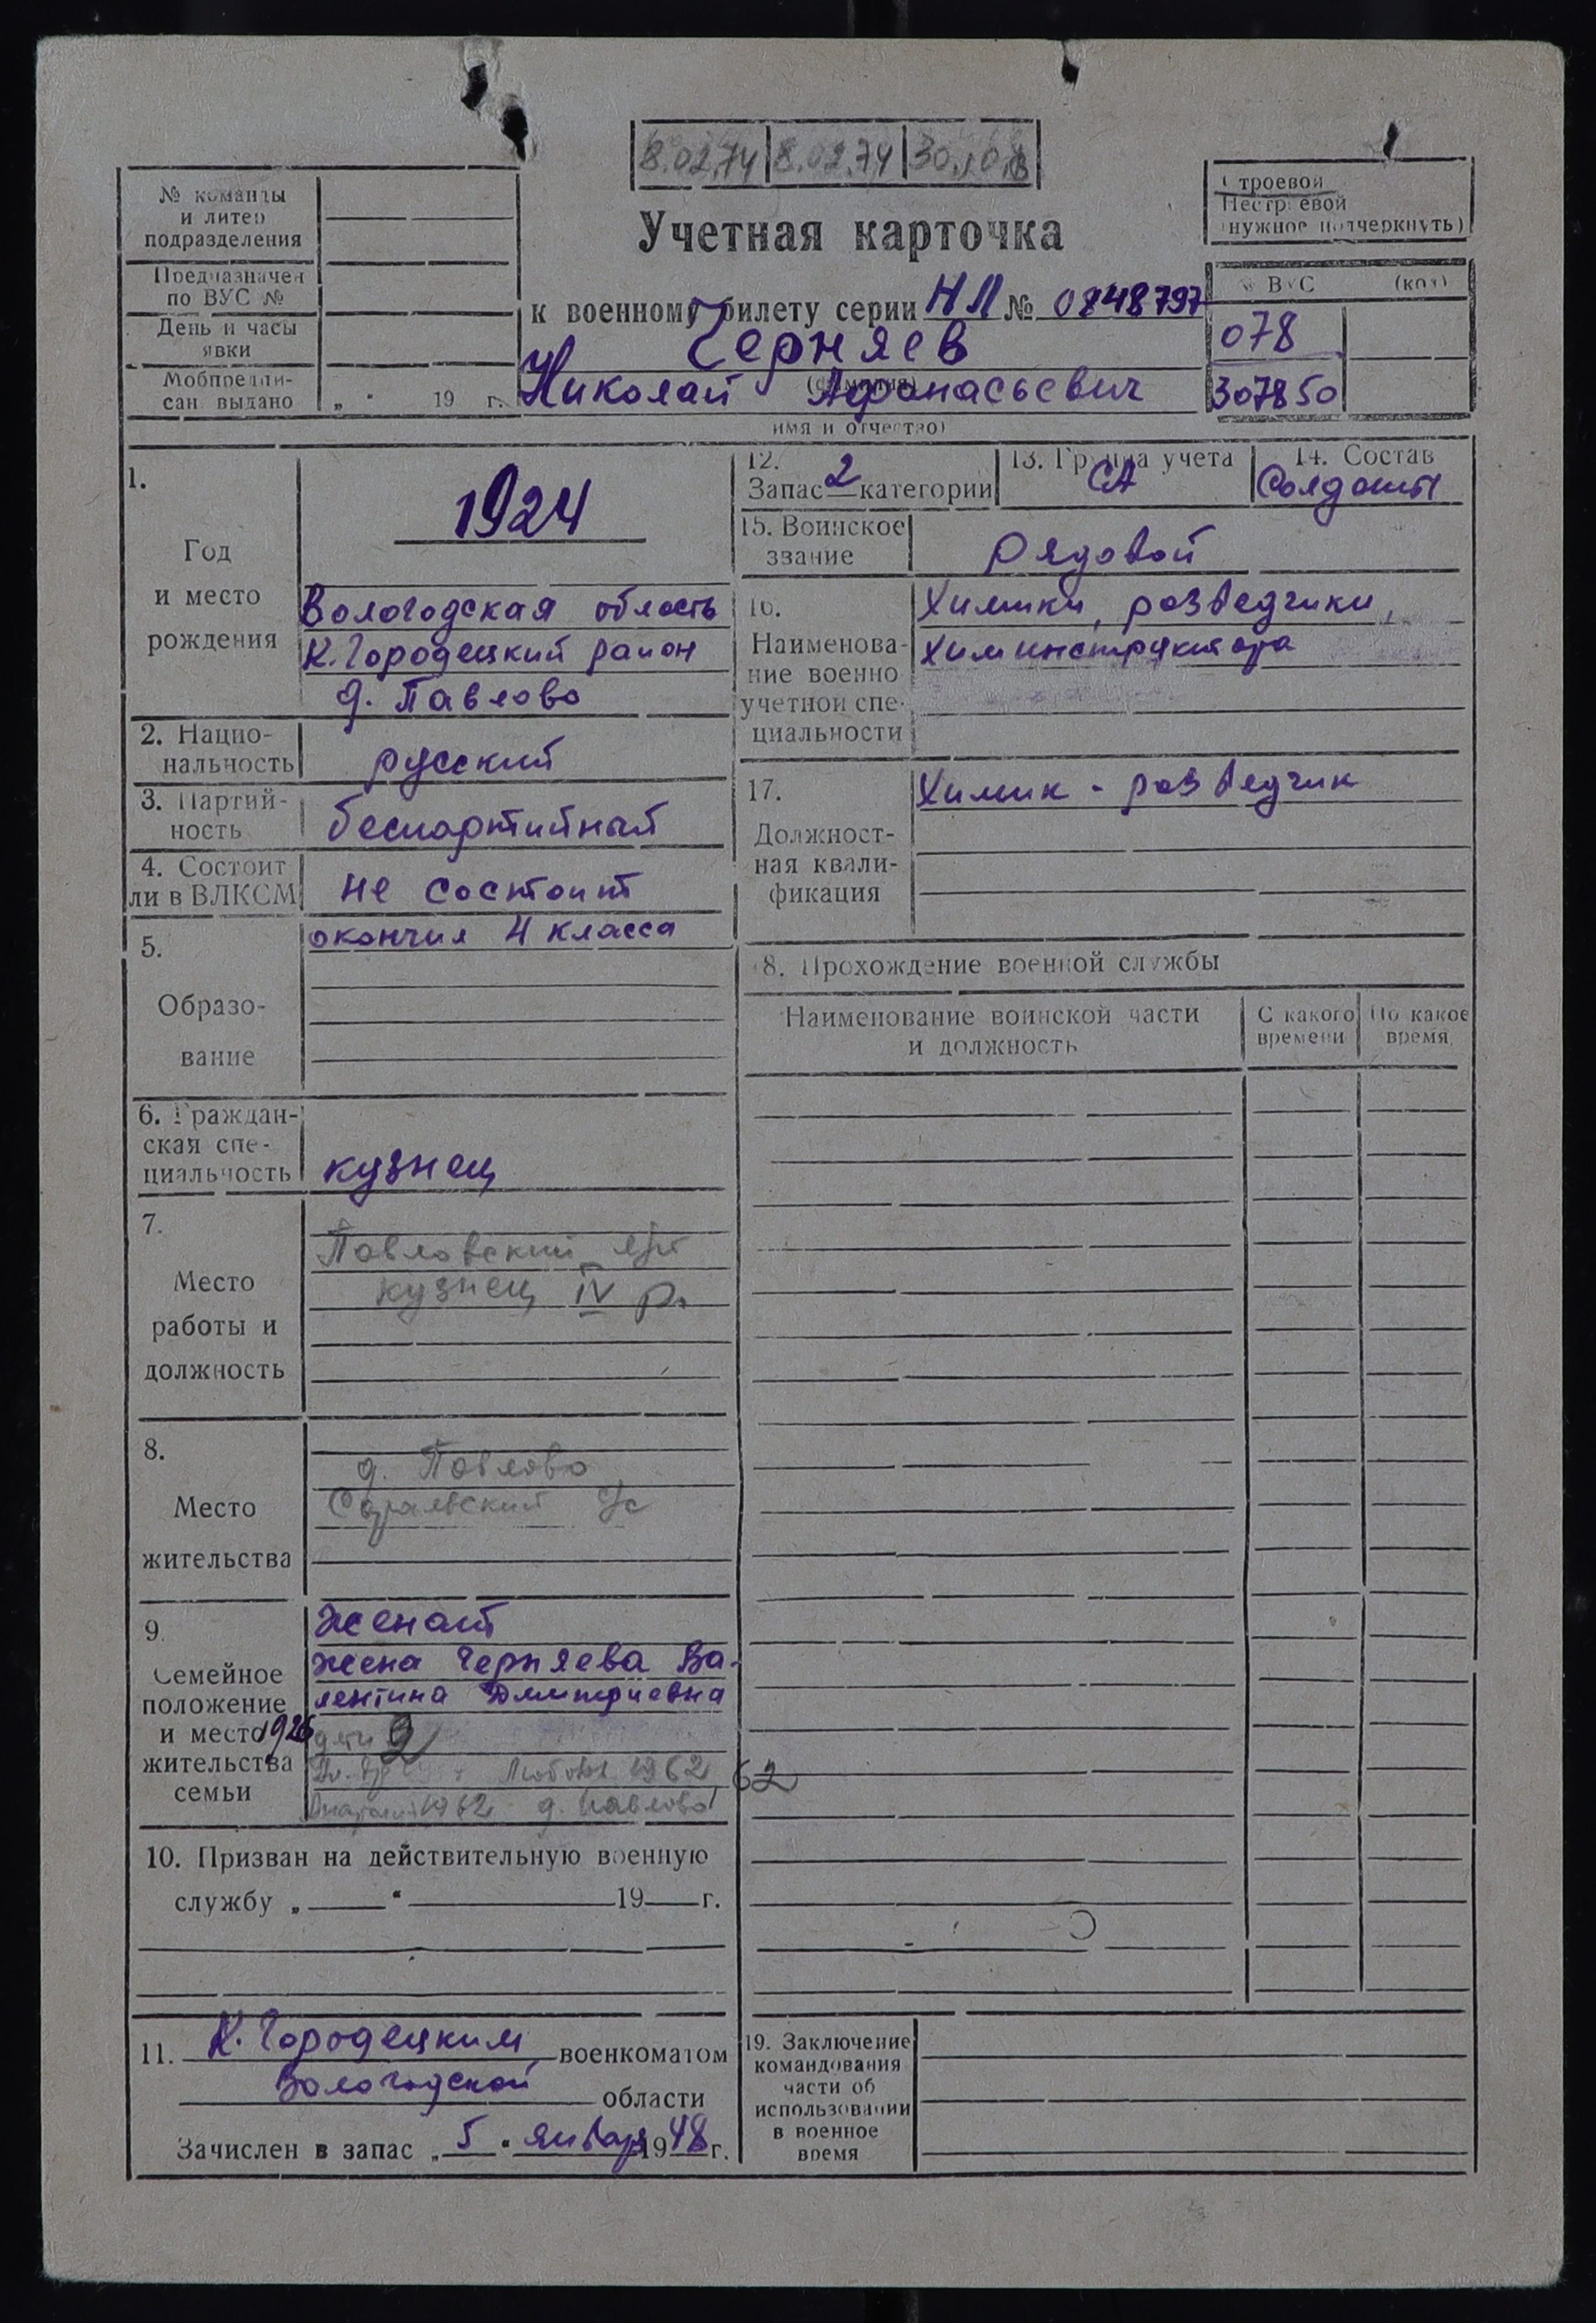 8.02.74 8.02.74
№ команды
и литер
подразделения
Предназначен
по ВУС №
День и часы
явки
Мобпредпи-
сан. выдано „ “ 19 г.
Учетная карточка
к военному билету серии НЛ № 0848797
Черняев
(фамилия)
Николай Афонасьевич
имя и отчество)
Строевой
Нестроевой
(нужное подчеркнуть)
№ ВУС (код)
078
307850
1.
Год
и место
рождения
1924
Вологодская область
К.Городецкий район
д. Павлово
2. Нацио-
нальность
русский
3. Партий-
ность
беспартийный
4. Состоит
ли в ВЛКСМ
не состоит
5.
Образо-
вание
окончил 4 класса
6. Граждан-
ская спе-
циальность
кузнец
7.
Место
работы и
должность
Павловский
кузнец IV р.
8.
Место
жительства
д. Павлово
с/с
9.
Семейное
положение
и место
жительства
семьи
женат
жена Черняева Ва-
лентина Дмитриевна
1926 дети 2
Любовь 1962 62
1962 д. Павлово
10. Призван на действительную военную
службу „ “ 19 г.
11. К. Городецким военкоматом
Вологодской области
Зачислен в запас „ 5 “ января 1948 г.
12.
Запас 2 категории
13. Группа учета
СА
14. Состав
Солдаты
15. Воинское
звание
рядовой
16.
Наименова-
ние военно
учетной спе-
циальности
Химики, разведчики,
химинструктора
17.
Должност-
ная квали-
фикация
Химик - разведчик
18. Прохождение военной службы
Наименование воинской части
и должность
С какого
времени
По какое
время
19. Заключение
командования
части об
использовании
в военное
время